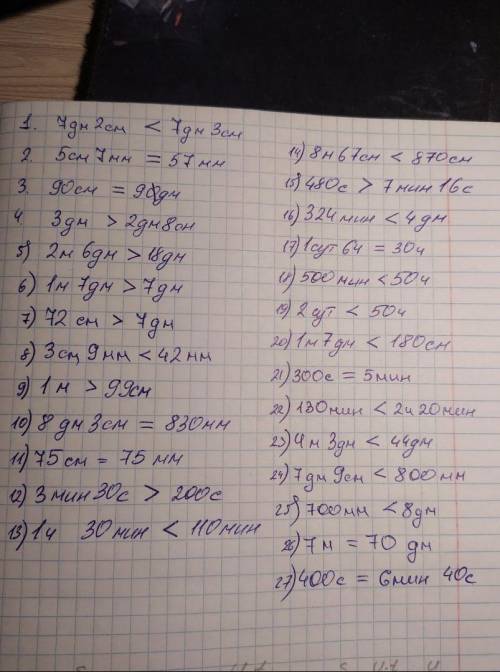 1. 7дм 2см < 7дм 3см
2. 5см 7мм = 57мм
3. 90см = 9дм
4. 3дм > 2дм 8см
5) 2м 6дм > 18дм
6) 1м 7дм > 7дм
7) 72 см > 7дм
8) 3см 9мм < 42мм
9) 1м > 99см
10) 8 дм 3см = 830мм
11) 75см = 75 мм
12) 3мин 30с > 200с
13) 1ч 30мин < 110мин
14) 8м 67см < 870см
15) 480с > 7мин 16с
16) 324мин < 4дм
17) 1сут 6ч = 30ч
18) 500мин < 50ч
19) 2сут < 50ч
20) 1м 7дм < 180см
21) 300с = 5мин
22) 130мин < 2ч 20мин
23) 4м 3дм < 44дм
24) 7дм 9см < 800мм
25) 700мм < 8дм
26) 7м = 70 дм
27) 400с = 6мин 40с